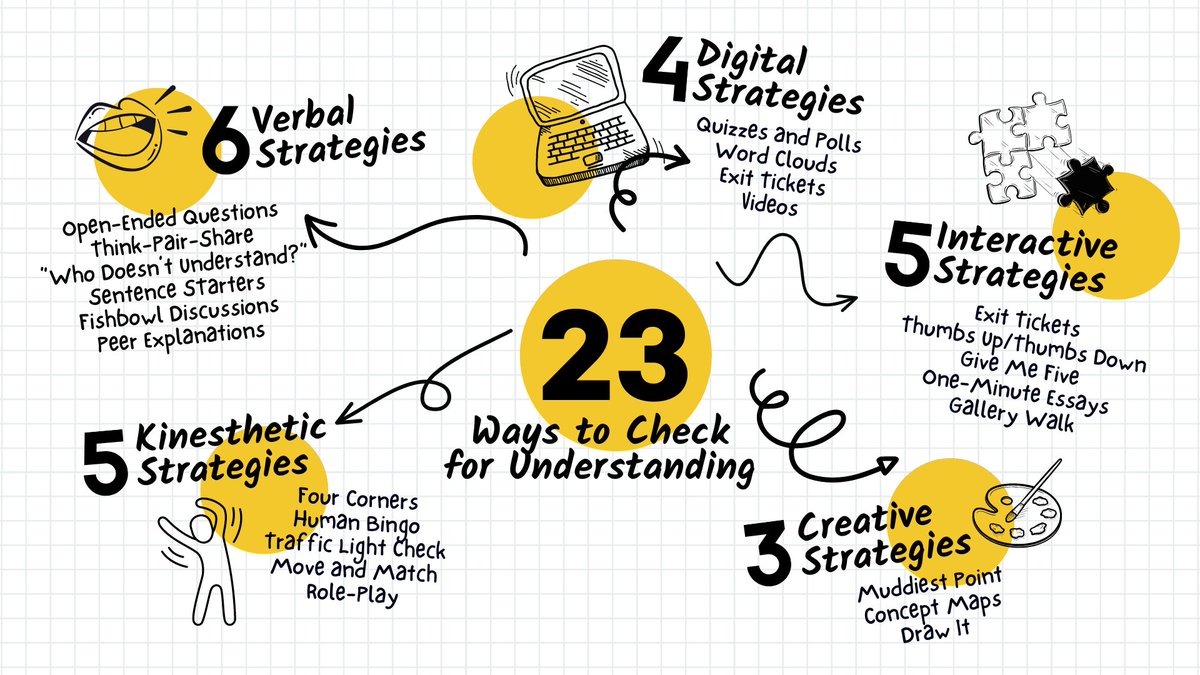 6 Verbal
Strategies
Open-Ended Questions
Think-Pair-Share
"Who Doesn't Understand?"
Sentence Starters
Fishbowl Discussions
Peer Explanations
4 Digital
Strategies
Quizzes and Polls
Word Clouds
Exit Tickets
Videos
5 Interactive
Strategies
Exit Tickets
Thumbs Up/Thumbs Down
Give Me Five
One-Minute Essays
Gallery Walk
23
Ways to Check
for Understanding
5 Kinesthetic
Strategies
Four Corners
Human Bingo
Traffic Light Check
Move and Match
Role-Play
3 Creative
Strategies
Muddiest Point
Concept Maps
Draw It